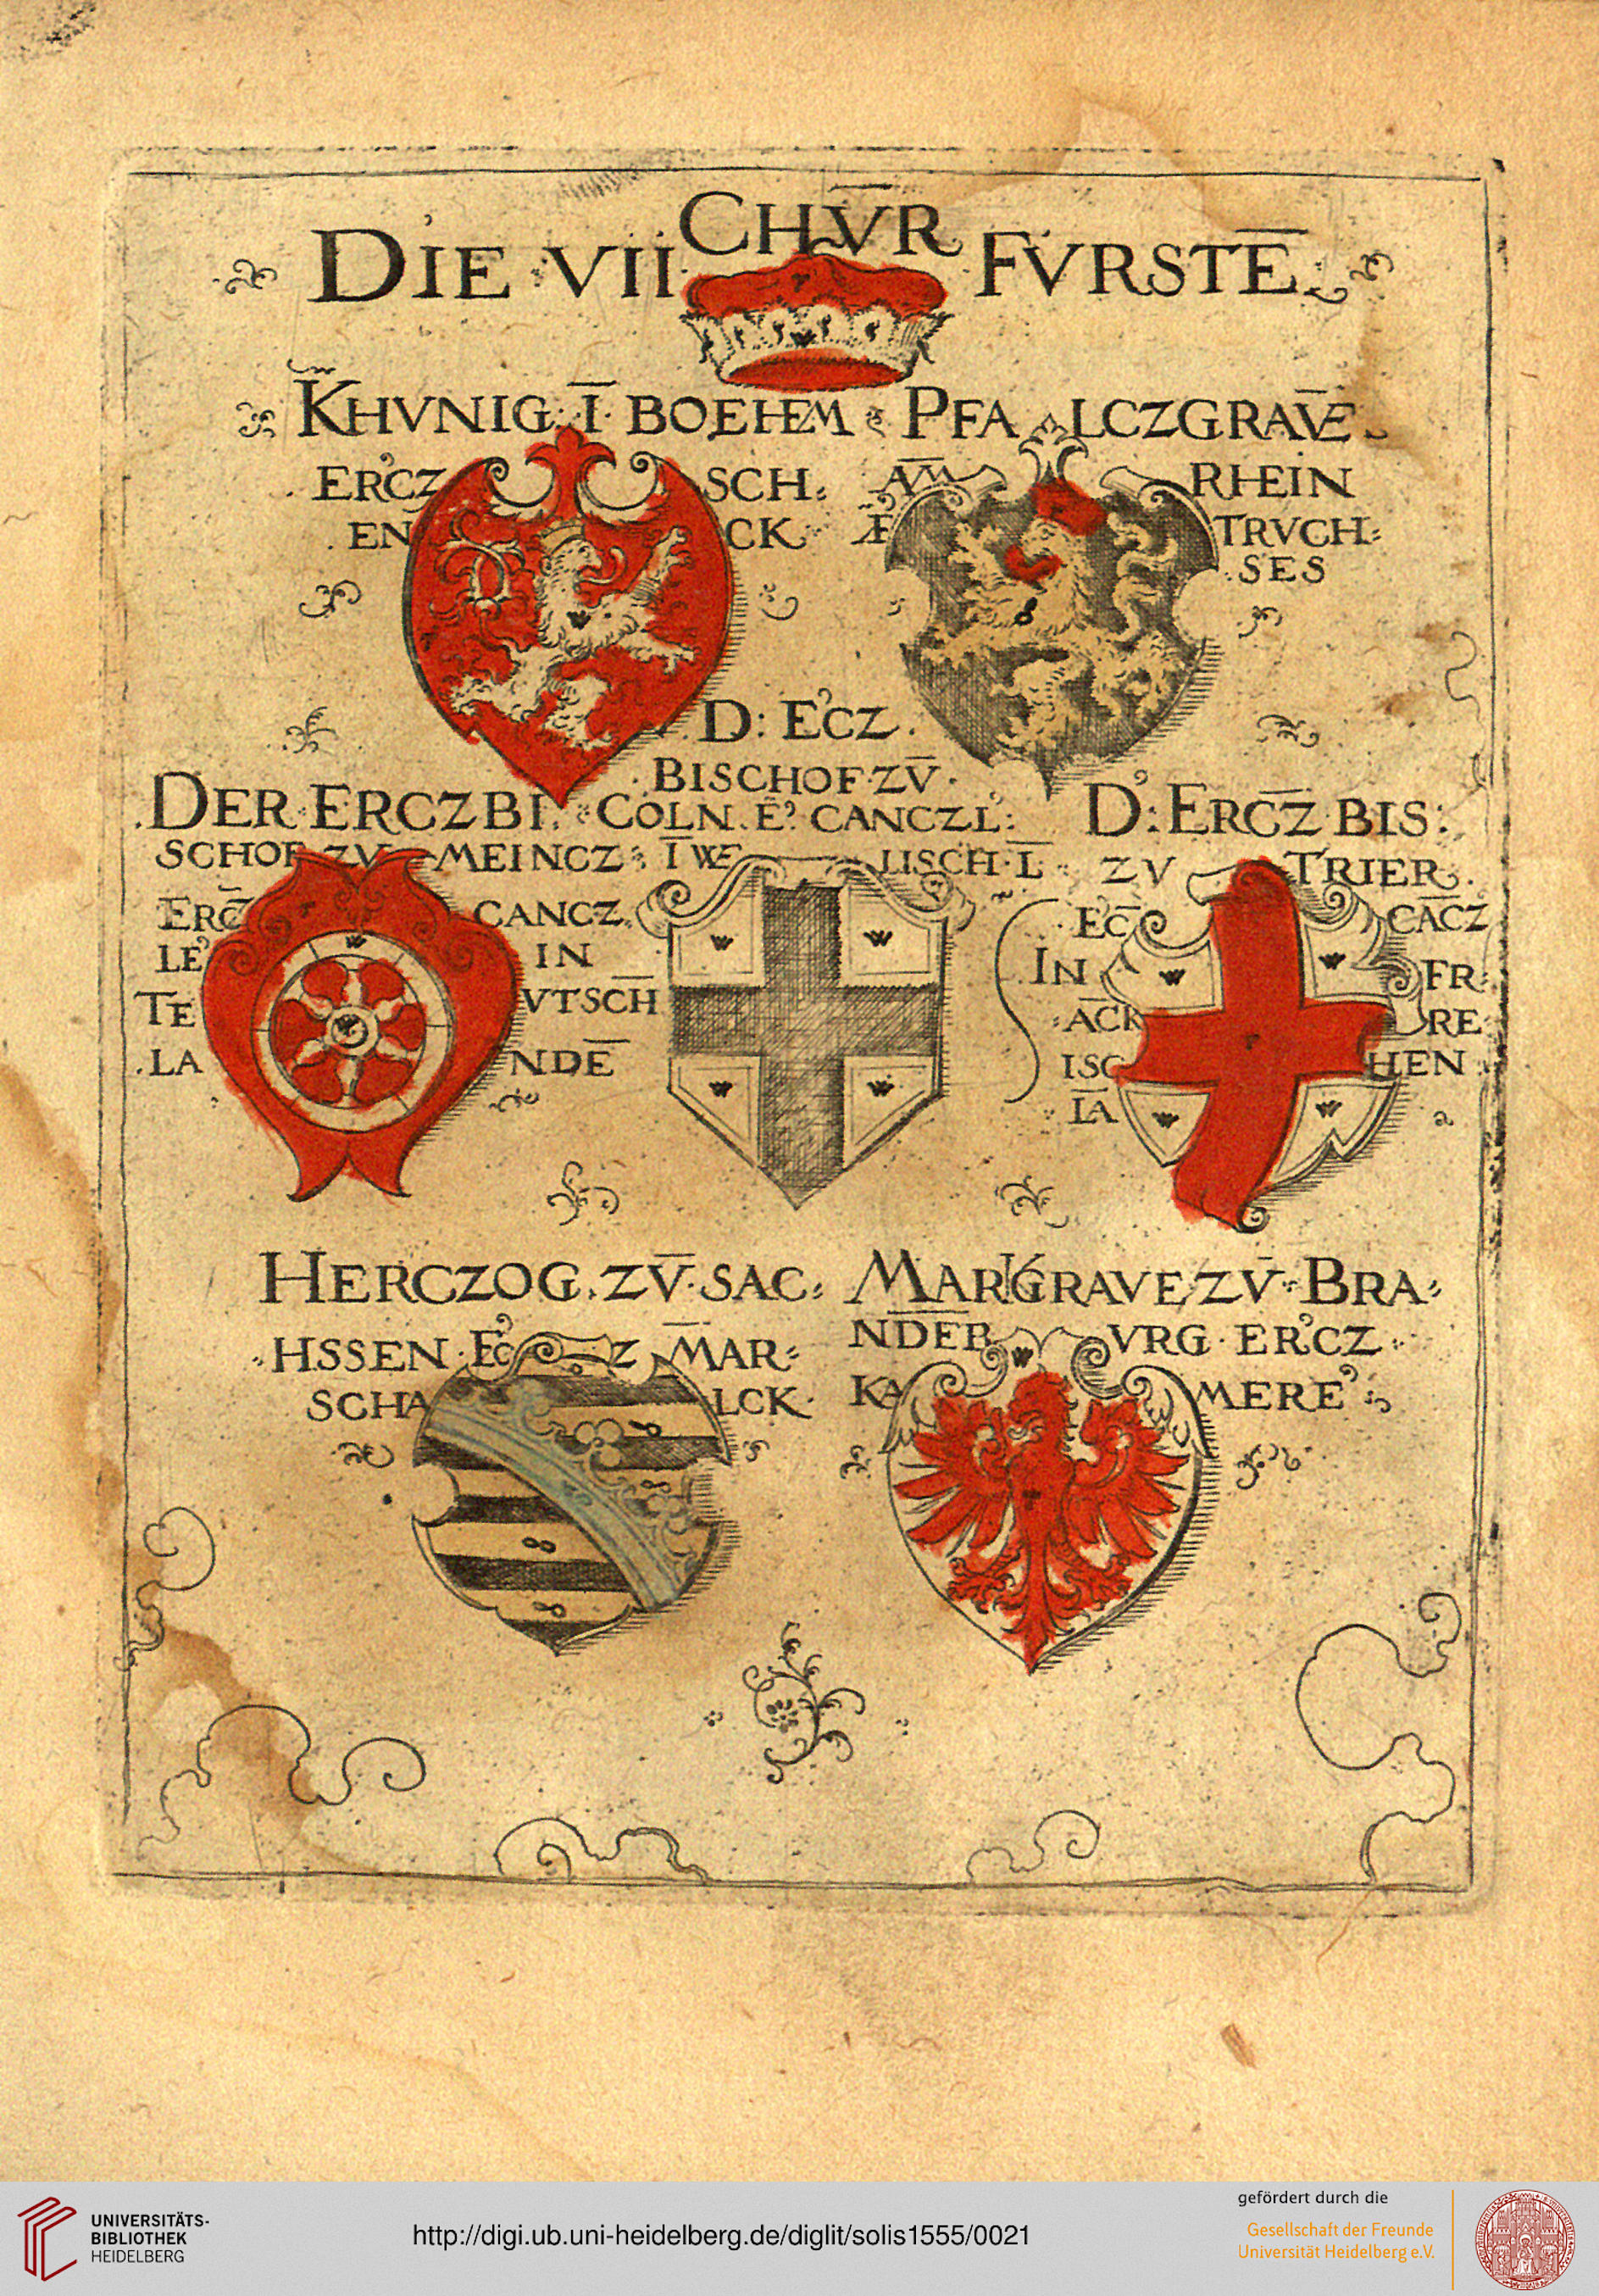 DIE VII CHVR FVRSTĒ
KHVNIG Ī BOEHEM
ERCZ SCH
EN CK
PFA LCZGRAVE
AM̄ RHEIN
E TRVCH
SES
D: ECZ
BISCHOF ZV̄
COLN E CANCZL:
Ī WE LISCH L̄
DER ERCZBI
SCHOF ZV MEINCZ
ERC̄ CANCZ
LE IN
TE VTSCH
LA NDĒ
D: ERCZ̄ BIS:
ZV TRIER
EC̄ CĀCZ
IN FR
ĀCK RE
ISC HEN
LĀ
HERCZOG ZV̄ SAC
HSSEN EC Z M̄AR
SCHA LCK
MARKGRAVE ZV̄ BRA
NDEB VRG ERCZ
KA MERE
UNIVERSITÄTS-
BIBLIOTHEK
HEIDELBERG
http://digi.ub.uni-heidelberg.de/diglit/solis1555/0021
gefördert durch die
Gesellschaft der Freunde
Universität Heidelberg e.V.